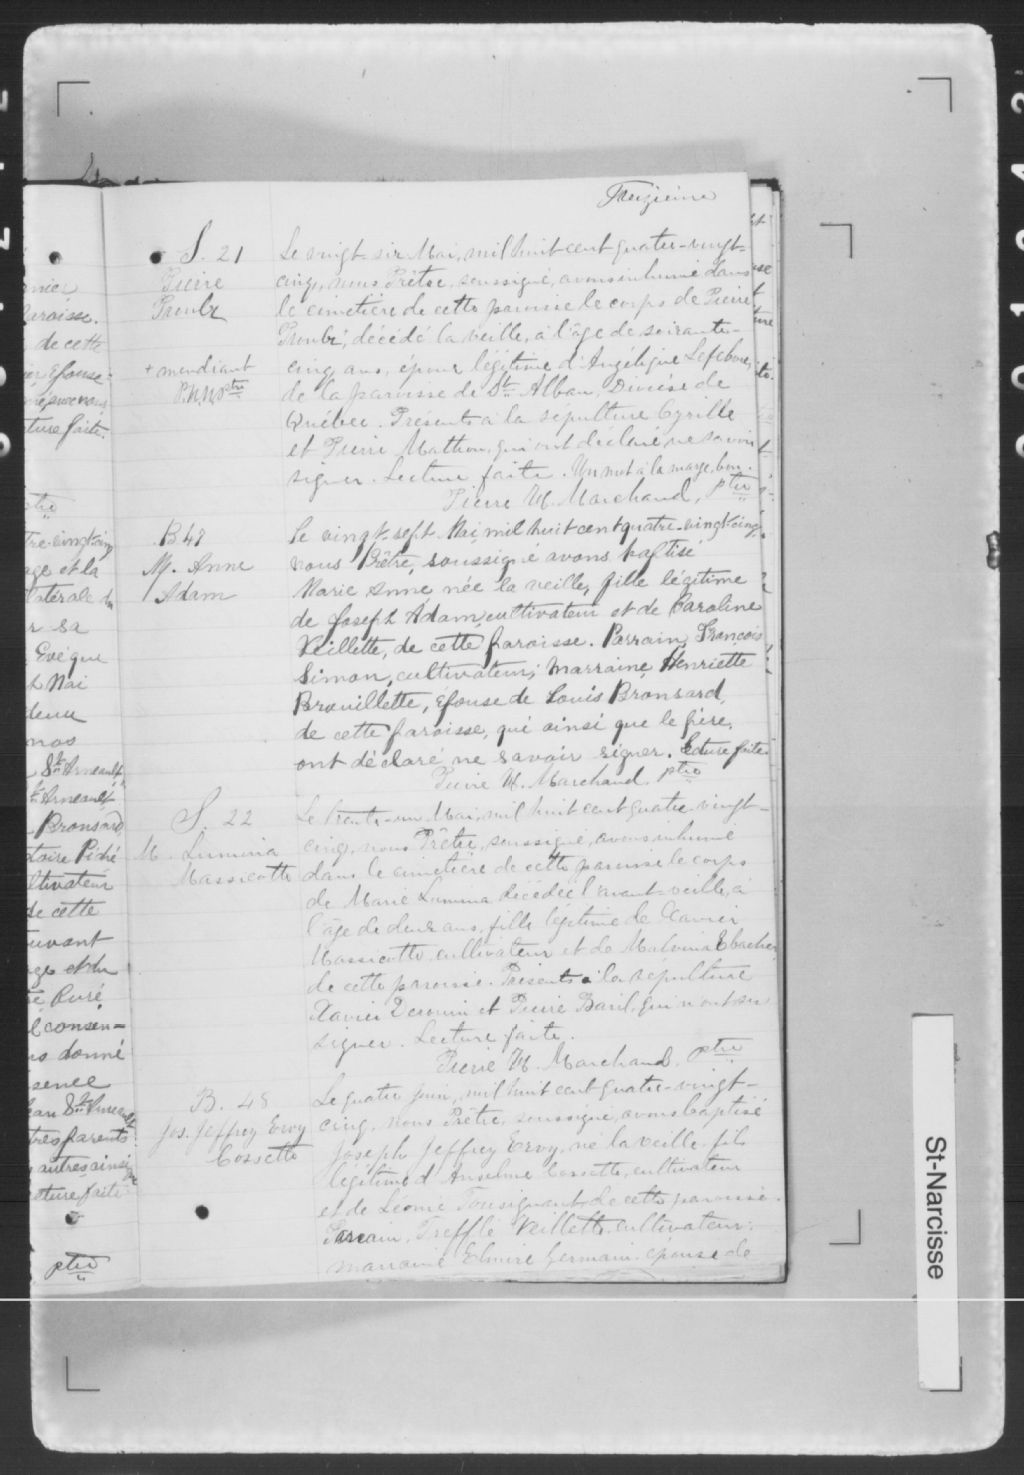 Treizième
S. 21
Pierre
+ mendiant
P.N.M ptre
Le vingt-six Mai, mil huit cent quatre-vingt-
cinq, nous Prêtre, soussigné, avons inhumé dans
le cimetière de cette paroisse le corps de Pierre
décédé la veille, à l'âge de soixante-
cinq ans, époux légitime d'Angélique Lefebvre,
de la paroisse de St. Alban, Diocèse de
Québec. Présents à la sépulture Cyrille
et Pierre Mathon, qui ont déclaré ne savoir
signer. Lecture faite. Un mot à la marge, bon.
Pierre H. Marchand, ptre
B 48
M. Anne
Adam
Le vingt-sept Mai mil huit cent quatre-vingt-cinq,
nous Prêtre, soussigné avons baptisé
Marie Anne née la veille, fille légitime
de Joseph Adam, cultivateur et de Caroline
Veillette, de cette paroisse. Parrain, François
Simon, cultivateur; marraine Henriette
Brouillette, épouse de Louis Bronsard,
de cette paroisse, qui ainsi que le père,
ont déclaré ne savoir signer. Lecture faite
Pierre H. Marchand. ptre
S. 22
M. Lumina
Massicotte
Le trente-un Mai, mil huit cent quatre-vingt-
cinq, nous Prêtre, soussigné, avons inhumé
dans le cimetière de cette paroisse le corps
de Marie Lumina décédée l'avant-veille, à
l'âge de deux ans, fille légitime de Xavier
Massicotte cultivateur et de Malvina Ebacher
de cette paroisse. Présents à la sépulture
Xavier et Pierre Baril, qui n'ont su
signer. Lecture faite.
Pierre H. Marchand. ptre
B. 48
Jos. Jeffrey Ervy
Cossette
Le quatre juin, mil huit cent quatre-vingt-
cinq, nous Prêtre, soussigné, avons baptisé
Joseph Jeffrey Ervy, né la veille, fils
légitime d'Anselme Cossette, cultivateur
et de Léonie Tousignant de cette paroisse.
Parrain, Trefflé Veillette cultivateur;
marraine Elmire Germain épouse de
paroisse.
de cette
ture faite.
tre-vingt-cinq
age et la
latérale du
r sa
Evêque
t Mai
nos
Ste Arneault
Bronsard
toire Piché
ltivateur
de cette
uvant
age et du
Curé,
consen-
ns donné
sence
tres parents
autres ainsi
cture faite
ptre
St-Narcisse